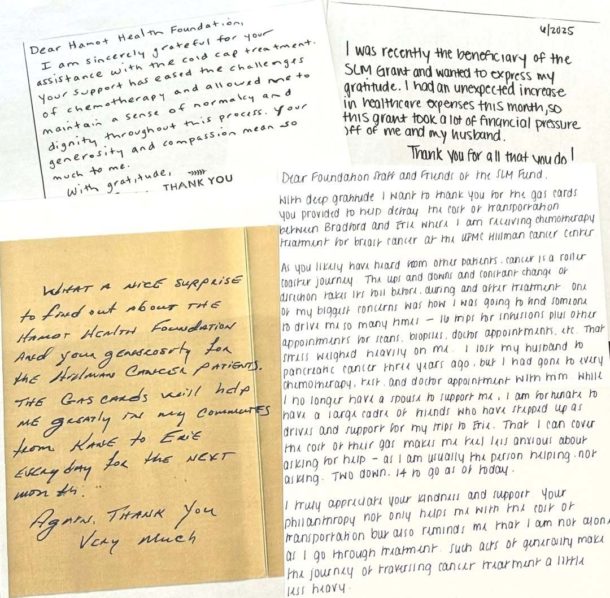 Dear Hamot Health Foundation,
I am sincerely grateful for your
assistance with the cold cap treatment.
Your support has eased the challenges
of chemotherapy and allowed me to
maintain a sense of normalcy and
dignity throughout this process. Your
generosity and compassion mean so
much to me.
With gratitude,
THANK YOU
6/2025
I was recently the beneficiary of the
SLM Grant and wanted to express my
gratitude. I had an unexpected increase
in healthcare expenses this month, so
this grant took a lot of financial pressure
off of me and my husband.
Thank you for all that you do!
WHAT A NICE SURPRISE
to find out about THE
HAMOT HEALTH FOUNDATION
AND your generosity for
the HILLMAN CANCER PATIENTS.
THE GAS CARDS will help
me greatly in my commutes
from KANE to ERIE
EVERYDAY for the NEXT
month.
AGAIN, THANK YOU
VERY MUCH
Dear Foundation Staff and Friends of the SLM Fund,
With deep gratitude I want to thank you for the gas cards
you provided to help defray the cost of transportation
between Bradford and Erie where I am receiving chemotherapy
treatment for breast cancer at the UPMC Hillman Cancer Center
As you likely have heard from other patients, cancer is a roller
coaster journey. The ups and downs and constant change of
direction takes its toll before, during and after treatment. One
of my biggest concerns was how I was going to find someone
to drive me so many times - 16 trips for infusions plus other
appointments for scans, biopsies, doctor appointments, etc. That
stress weighed heavily on me. I lost my husband to
pancreatic cancer three years ago, but I had gone to every
chemotherapy, test, and doctor appointment with him. While
I no longer have a spouse to support me, I am fortunate to
have a large cadre of friends who have stepped up as
drives and support for my trips to Erie. That I can cover
the cost of their gas makes me feel less anxious about
asking for help - as I am usually the person helping, not
asking. Two down, 14 to go as of today.
I truly appreciate your kindness and support. Your
philanthropy not only helps me with the cost of
transportation but also reminds me that I am not alone
as I go through treatment. Such acts of generosity make
the journey of traversing cancer treatment a little
less heavy.